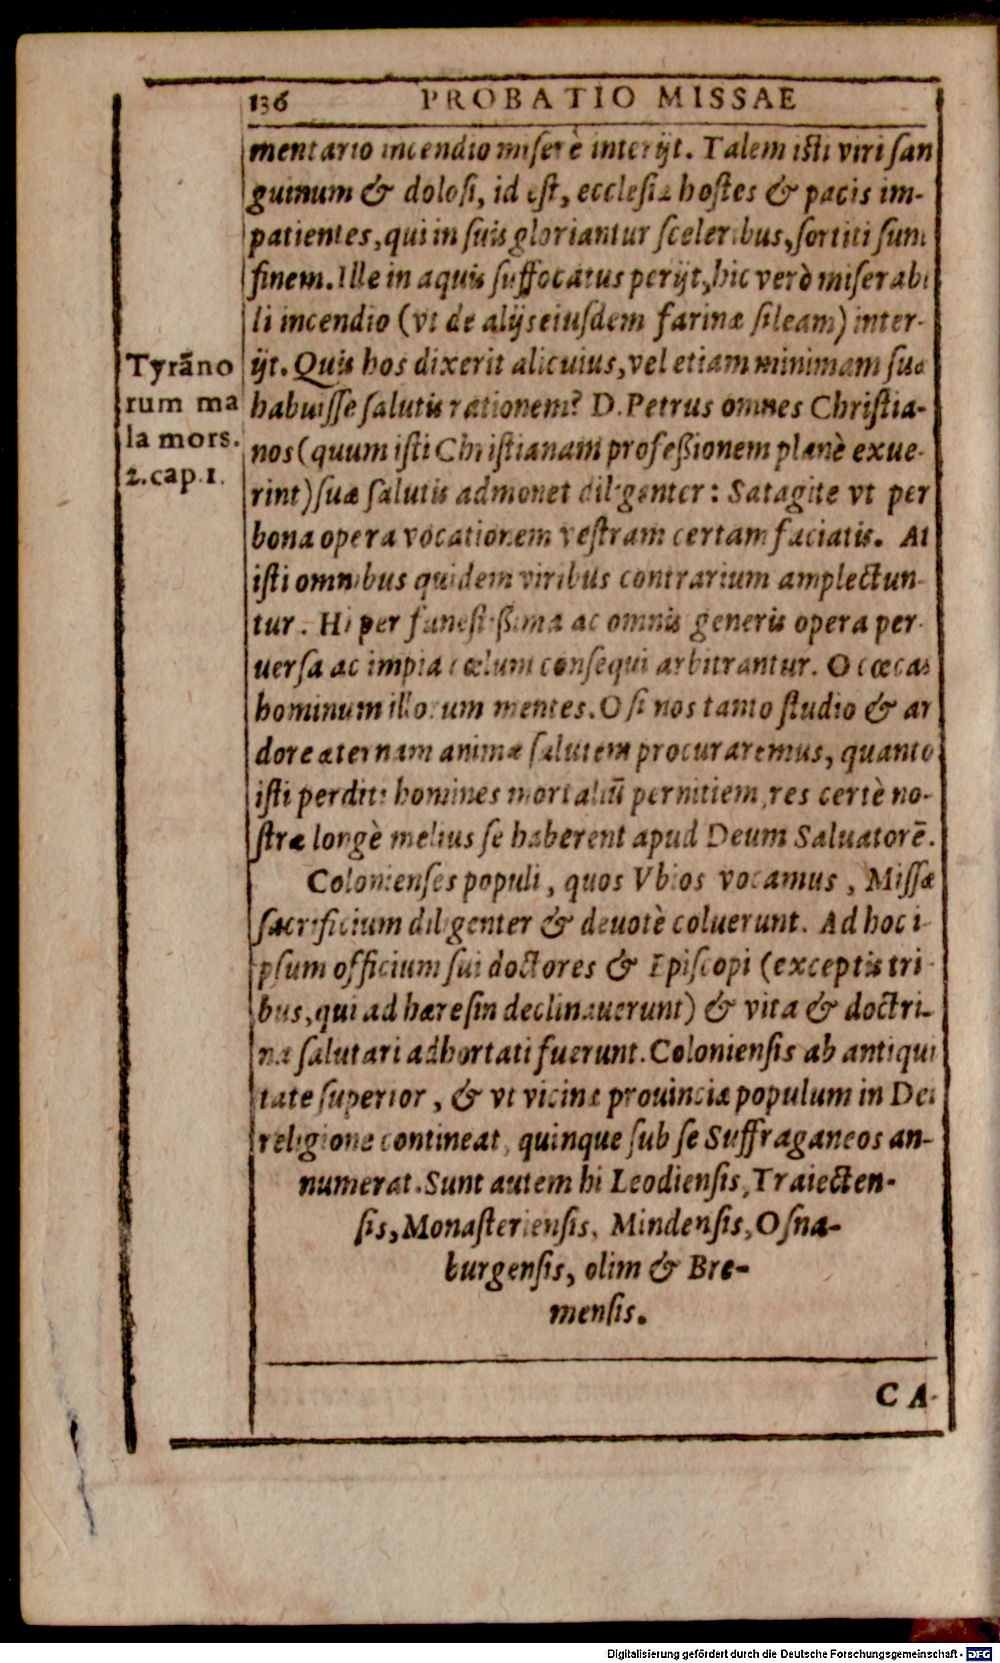 136 PROBATIO MISSAE
mentario incendio miserè interijt. Talem isti viri san
guinum & dolosi, id est, ecclesiæ hostes & pacis im-
patientes, qui in suis gloriantur sceleribus, sortiti sunt
finem. Ille in aquis suffocatus perijt, hic verò miserabi
li incendio (vt de alijs eiusdem farinæ sileam) inter-
ijt. Quis hos dixerit alicuius, vel etiam minimam suæ
habuisse salutis rationem? D. Petrus omnes Christia-
nos (quum isti Christianam professionem planè exue-
rint) suæ salutis admonet diligenter: Satagite vt per
bona opera vocationem vestram certam faciatis. At
isti omnibus quidem viribus contrarium amplectun-
tur. Hi per funestissima ac omnis generis opera per-
uersa ac impia cœlum consequi arbitrantur. O cœcas
hominum illorum mentes. O si nos tanto studio & ar
dore æternam animæ salutem procuraremus, quanto
isti perditi homines mortaliũ pernitiem, res certè no-
stræ longè melius se haberent apud Deum Saluatorẽ.
Tyrãno
rum ma
la mors.
2. cap. 1.
Colonienses populi, quos Vbios vocamus, Missæ
sacrificium diligenter & deuotè coluerunt. Ad hoc i-
psum officium sui doctores & Episcopi (exceptis tri-
bus, qui ad hæresin declinauerunt) & vita & doctri-
na salutari adhortati fuerunt. Coloniensis ab antiqui
tate superior, & vt vicinæ prouinciæ populum in Dei
religione contineat, quinque sub se Suffraganeos an-
numerat. Sunt autem hi Leodiensis, Traiecten-
sis, Monasteriensis, Mindensis, Osna-
burgensis, olim & Bre-
mensis.
CA-
Digitalisierung gefördert durch die Deutsche Forschungsgemeinschaft - DFG